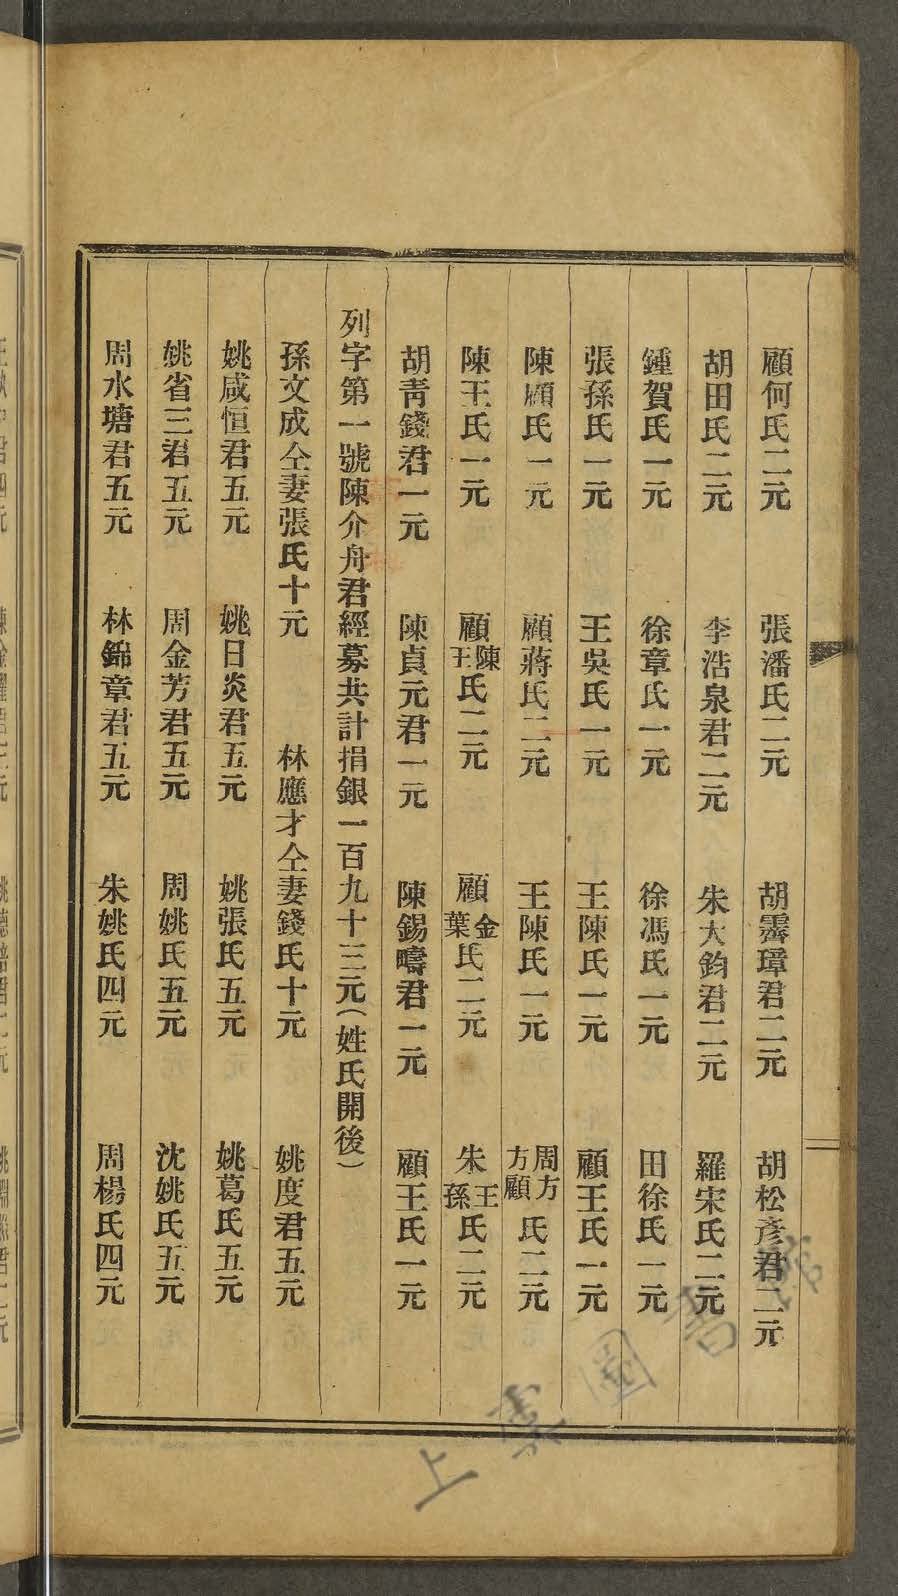 顧何氏二元　張潘氏二元　胡霽璋君二元　胡松彥君二元
胡田氏二元　李浩泉君二元　朱大鈞君二元　羅宋氏二元
鍾賀氏一元　徐章氏一元　徐馮氏一元　田徐氏一元
張孫氏一元　王吳氏一元　王陳氏一元　顧王氏一元
陳顧氏一元　顧蔣氏二元　王陳氏一元　周方方顧氏二元
陳王氏一元　顧陳王氏二元　顧金葉氏二元　朱王孫氏二元
胡靑錢君一元　陳貞元君一元　陳錫疇君一元　顧王氏一元
列字第一號陳介舟君經募共計捐銀一百九十三元（姓氏開後）
孫文成仝妻張氏十元　林應才仝妻錢氏十元　姚度君五元
姚咸恒君五元　姚日炎君五元　姚張氏五元　姚葛氏五元
姚省三君五元　周金芳君五元　周姚氏五元　沈姚氏五元
周水塘君五元　林錦章君五元　朱姚氏四元　周楊氏四元
上虞圖書